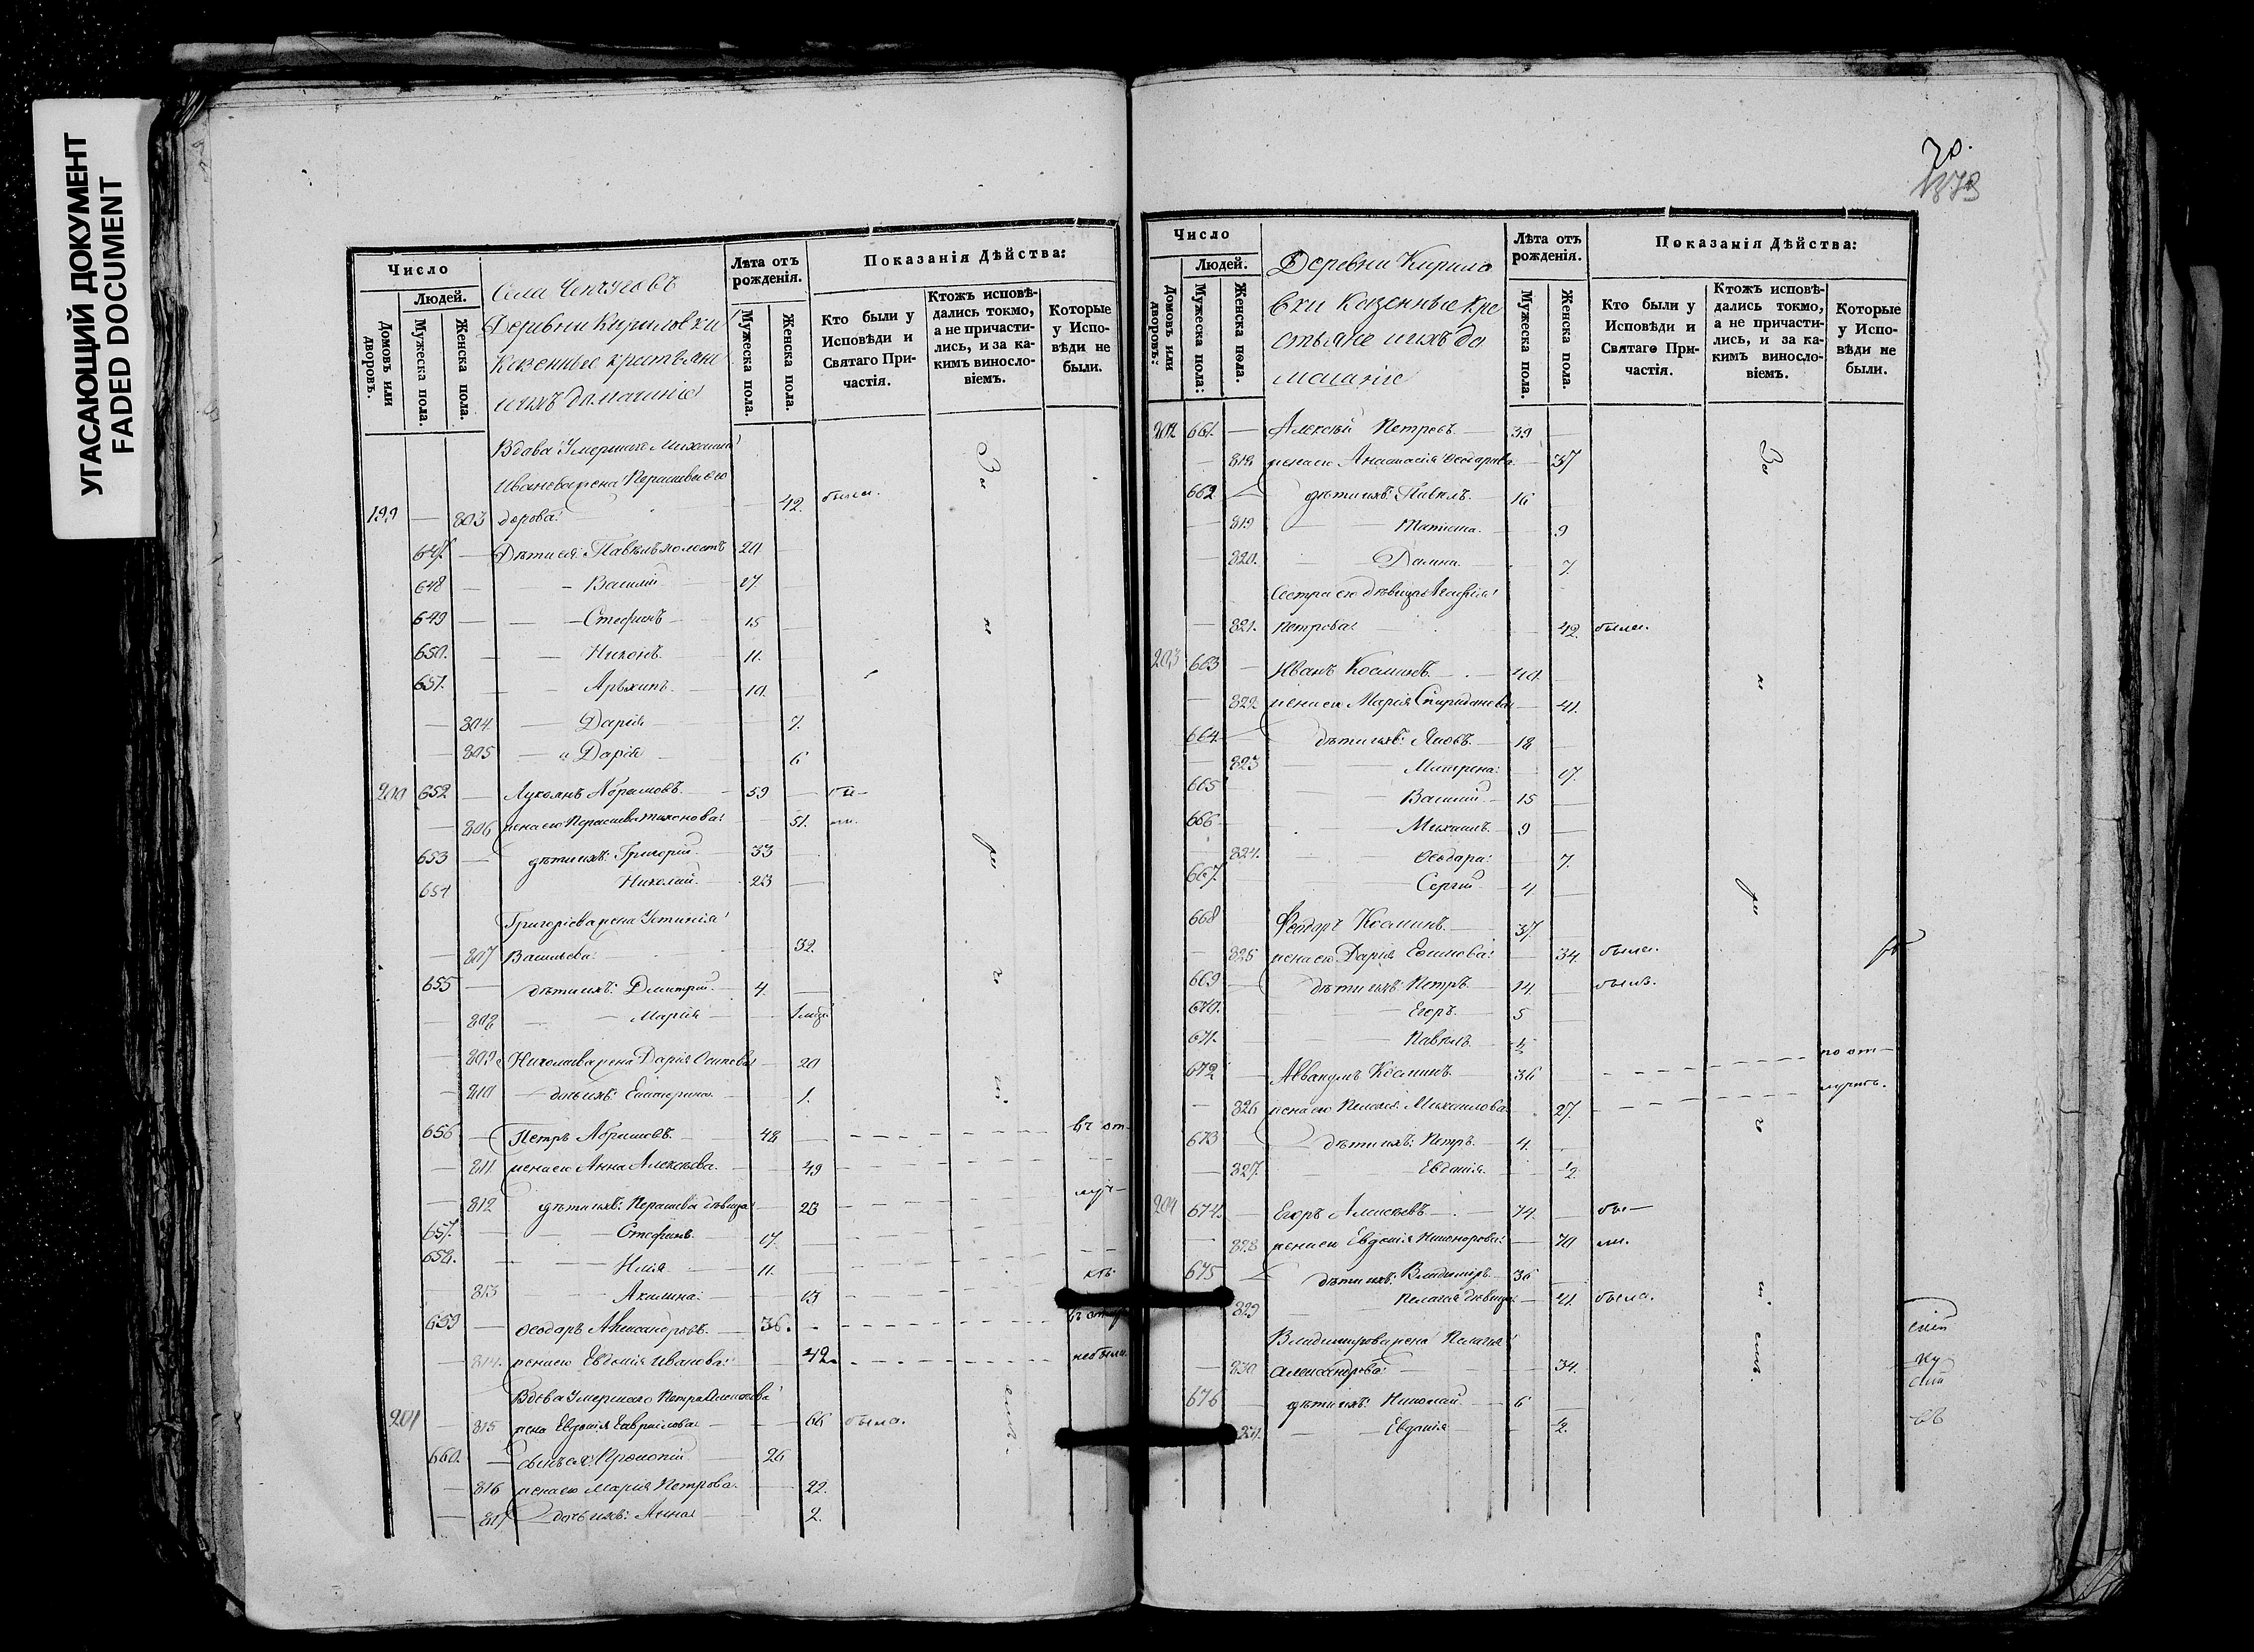 УГАСАЮЩИЙ ДОКУМЕНТ
FADED DOCUMENT
Число
Людей.
Домовъ или дворовъ.
Мужеска пола.
Женска пола.
Села
Деревни Кириловки
Казенные крестьяне
и ихъ домашнiе
Лѣта отъ рожденiя.
Мужеска пола.
Женска пола.
Показанiя Дѣйства:
Кто были у
Исповѣди и
Святаго При-
частiя.
Ктожъ исповѣ-
дались токмо,
а не причасти-
лись, и за ка-
кимъ винословiемъ.
Которые
у Испо-
вѣди не
были.
Вдова Умершаго Михаила
Иванова жена Параскева Фео
199 — 803 дорова — 42. была.
647. — Дѣти ея: Павелъ холостъ 20
648 — Василiй 17
649 — Стефанъ 15
650. — Никонъ 11.
651. — Архипъ 10.
— 804. Дарiя 7.
— 805 Дарiя 6
200 652 — Абрамовъ 59 — бы-
— 806 жена его Параскева Тихонова 51. ли.
653 — дѣти ихъ: Григорiй 33
654 Николай 23
Григорiева жена Устинiя
— 807 Васильева 32.
655 — дѣти ихъ: Дмитрiй 4.
— 808 Марiя
— 809 Николаева жена Дарiя Осипова 20
— 810 дочь ихъ: Екатерина 1.
656 — Петръ Абрамовъ 48 въ от-
— 811. жена его Анна Алексѣева 49
— 812 дѣти ихъ: Параскева дѣвица 23 луч-
657. — Стефанъ 17.
658. — Илiя 11. кѣ
— 813 Акилина 13
659 — Феодоръ Александровъ 36.
— 814. жена его Евдокiя Иванова 42. не были.
Вдова Умершаго Петра
201 — 815 жена Евдокiя Гаврилова 66 была.
660. — сынъ ея: Прокопiй 26
— 816 жена его Марiя Петрова 22.
— 817 дочь ихъ: Анна 2.
70.
Число
Людей.
Домовъ или дворовъ:
Мужеска пола:
Женска пола.
Деревни Кирило
вки Казенные кре
стьяне и ихъ до
машнiе
Лѣта отъ рожденiя.
Мужеска пола.
Женска пола.
Показанiя Дѣйства:
Кто были у
Исповѣди и
Святаго При-
частiя.
Ктожъ исповѣ-
дались токмо,
а не причасти-
лись, и за ка-
кимъ винословiемъ.
Которые
у Испо-
вѣди не
были.
202 661. — Алексѣй Петровъ 39
— 818 жена его Анастасiя Феодорова 37
662 — дѣти ихъ: Павелъ 16
— 819 Татiана 9
— 820. Домна 7.
Сестра его дѣвица
— 821. Петрова 42. была.
203 663 — Иванъ Косминъ 40.
— 822 жена его Марiя Спиридонова 41.
664. дѣти ихъ: Яковъ 18
— 823 Матрена 17.
665 Василiй 15
666 Михаилъ 9
— 824. Феодора 7.
667. Сергiй 4.
668 — Феодоръ Косминъ 37
— 825 жена его Дарiя 34. была.
669 — дѣти ихъ: Петръ 14. былъ.
670. Егоръ 5
671. Павелъ
672 — Аввакумъ Косминъ 36 по от-
— 826 жена его Пелагiя Михаилова 27. лучкѣ.
673 — дѣти ихъ: Петръ 4.
— 827. Евдокiя ½.
204 674. — Егоръ Алексѣевъ 74. бы-
— 828 жена его Евдокiя Никонорова 70 ли.
675 — дѣти ихъ: Владимiръ 36
— 829 Пелагiя дѣвица 41. была.
Владимирова жена Пелагiя
— 830 Александрова 34.
676 — дѣти ихъ: Николай 6
831. Евдокiя ½.